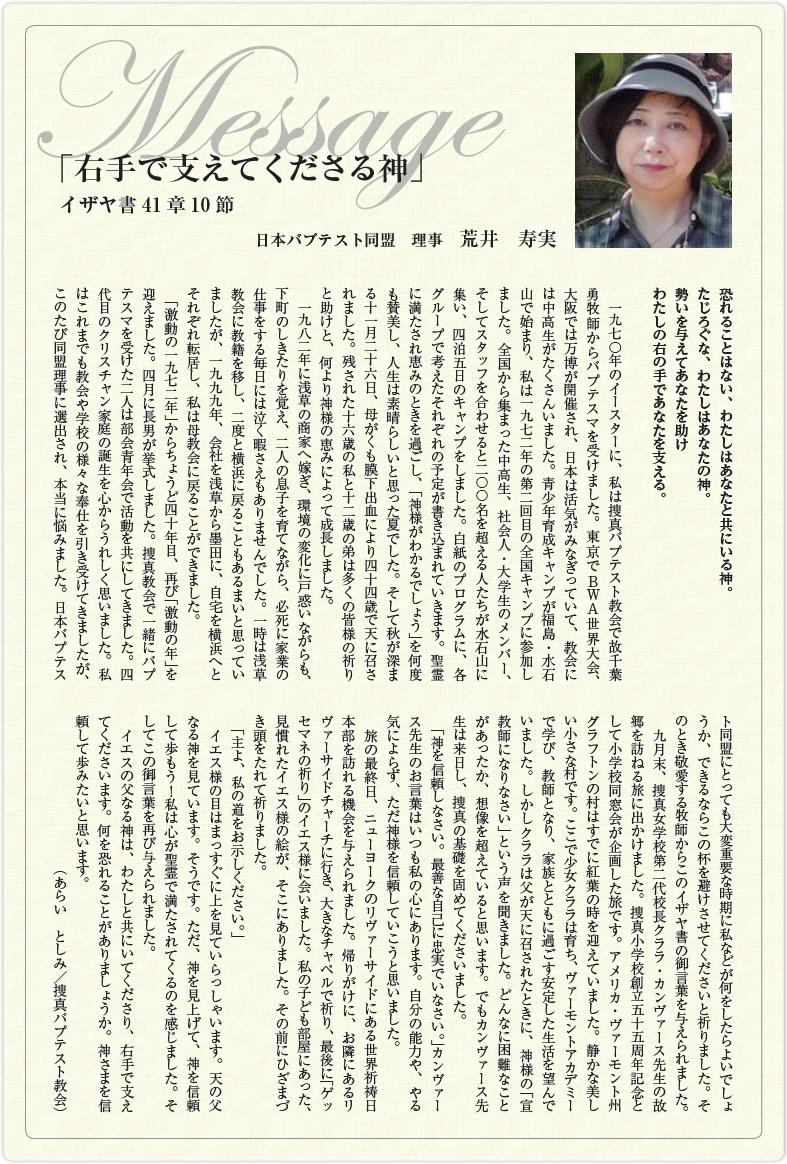 Message
「右手で支えてくださる神」
イザヤ書 41 章 10 節
日本バプテスト同盟　理事　荒井　寿実
恐れることはない、わたしはあなたと共にいる神。
たじろぐな、わたしはあなたの神。
勢いを与えてあなたを助け
わたしの右の手であなたを支える。
一九七〇年のイースターに、私は捜真バプテスト教会で故千葉
勇牧師からバプテスマを受けました。東京でＢＷＡ世界大会、
大阪では万博が開催され、日本は活気がみなぎっていて、教会に
は中高生がたくさんいました。青少年育成キャンプが福島・水石
山で始まり、私は一九七二年の第二回目の全国キャンプに参加し
ました。全国から集まった中高生、社会人・大学生のメンバー、
そしてスタッフを合わせると二〇〇名を超える人たちが水石山に
集い、四泊五日のキャンプをしました。白紙のプログラムに、各
グループで考えたそれぞれの予定が書き込まれていきます。聖霊
に満たされ恵みのときを過ごし、「神様がわかるでしょう」を何度
も賛美し、人生は素晴らしいと思った夏でした。そして秋が深ま
る十一月二十六日、母がくも膜下出血により四十四歳で天に召さ
れました。残された十六歳の私と十二歳の弟は多くの皆様の祈り
と助けと、何より神様の恵みによって成長しました。
一九八二年に浅草の商家へ嫁ぎ、環境の変化に戸惑いながらも、
下町のしきたりを覚え、二人の息子を育てながら、必死に家業の
仕事をする毎日には泣く暇さえもありませんでした。一時は浅草
教会に教籍を移し、二度と横浜に戻ることもあるまいと思ってい
ましたが、一九九九年、会社を浅草から墨田に、自宅を横浜へと
それぞれ転居し、私は母教会に戻ることができました。
「激動の一九七二年」からちょうど四十年目、再び「激動の年」を
迎えました。四月に長男が挙式しました。捜真教会で一緒にバプ
テスマを受けた二人は部会青年会で活動を共にしてきました。四
代目のクリスチャン家庭の誕生を心からうれしく思いました。私
はこれまでも教会や学校の様々な奉仕を引き受けてきましたが、
このたび同盟理事に選出され、本当に悩みました。日本バプテス
ト同盟にとっても大変重要な時期に私などが何をしたらよいでしょ
うか、できるならこの杯を避けさせてくださいと祈りました。そ
のとき敬愛する牧師からこのイザヤ書の御言葉を与えられました。
九月末、捜真女学校第二代校長クララ・カンヴァース先生の故
郷を訪ねる旅に出かけました。捜真小学校創立五十五周年記念と
して小学校同窓会が企画した旅です。アメリカ・ヴァーモント州
グラフトンの村はすでに紅葉の時を迎えていました。静かな美し
い小さな村です。ここで少女クララは育ち、ヴァーモントアカデミー
で学び、教師となり、家族とともに過ごす安定した生活を望んで
いました。しかしクララは父が天に召されたときに、神様の「宣
教師になりなさい」という声を聞きました。どんなに困難なこと
があったか、想像を超えていると思います。でもカンヴァース先
生は来日し、捜真の基礎を固めてくださいました。
「神を信頼しなさい。最善な自己に忠実でいなさい。」カンヴァー
ス先生のお言葉はいつも私の心にあります。自分の能力や、やる
気によらず、ただ神様を信頼していこうと思いました。
旅の最終日、ニューヨークのリヴァーサイドにある世界祈祷日
本部を訪れる機会を与えられました。帰りがけに、お隣にあるリ
ヴァーサイドチャーチに行き、大きなチャペルで祈り、最後に「ゲッ
セマネの祈り」のイエス様に会いました。私の子ども部屋にあった、
見慣れたイエス様の絵が、そこにありました。その前にひざまづ
き頭をたれて祈りました。
「主よ、私の道をお示しください。」
イエス様の目はまっすぐに上を見ていらっしゃいます。天の父
なる神を見ています。そうです。ただ、神を見上げて、神を信頼
して歩もう！私は心が聖霊で満たされてくるのを感じました。そ
してこの御言葉を再び与えられました。
イエスの父なる神は、わたしと共にいてくださり、右手で支え
てくださいます。何を恐れることがありましょうか。神さまを信
頼して歩みたいと思います。
（あらい　としみ／捜真バプテスト教会）